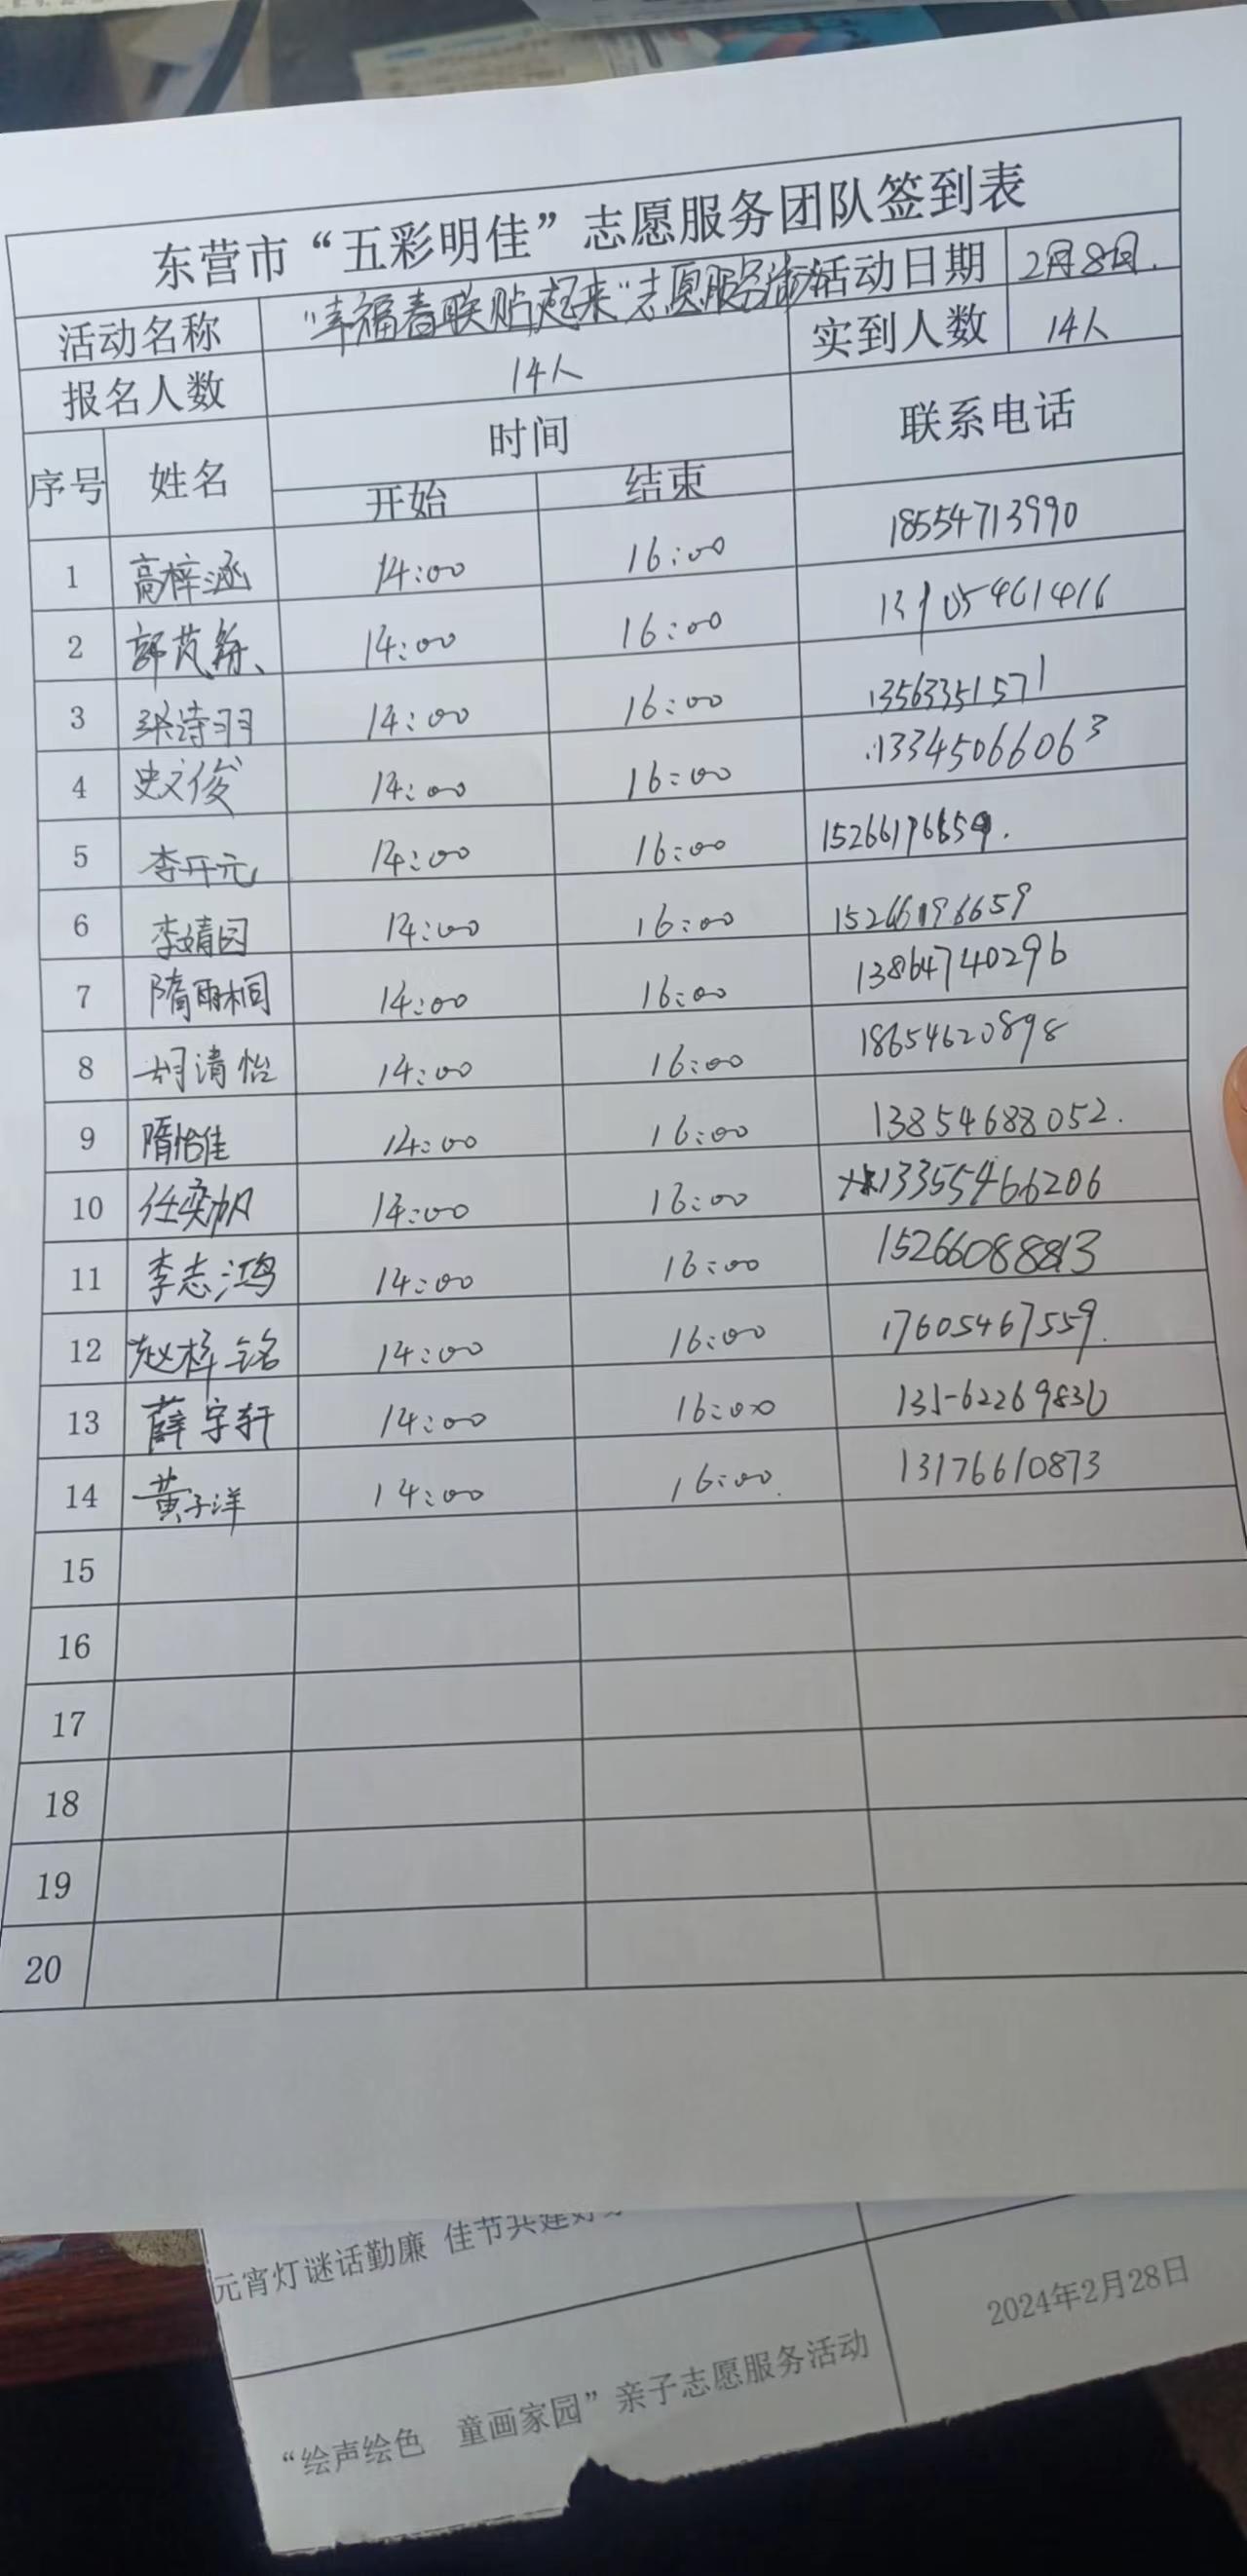 东营市“五彩明佳”志愿服务团队签到表
活动名称 “幸福春联贴起来”志愿服务活动 活动日期 2月8日.
报名人数 14人 实到人数 14人
序号 姓名 时间 联系电话
开始 结束
1 高梓涵 14:00 16:00 18554713990
2 郭芃 14:00 16:00 13105461416
3 张诗羽 14:00 16:00 13563351571
4 史文俊 14:00 16:00 13345066063
5 李开元 14:00 16:00 15266196659.
6 李婧因 14:00 16:00 15266196659
7 隋雨桐 14:00 16:00 13864740296
8 胡清怡 14:00 16:00 18654620898
9 隋怡佳 14:00 16:00 13854688052.
10 任奕帆 14:00 16:00 13355466206
11 李志鸿 14:00 16:00 15266088813
12 赵梓铭 14:00 16:00 17605467559.
13 薛宇轩 14:00 16:00
14 黄子洋 14:00 16:00. 13176610873
15
16
17
18
19
20
元宵灯谜话勤廉 佳节共建好
“绘声绘色 童画家园”亲子志愿服务活动 2024年2月28日